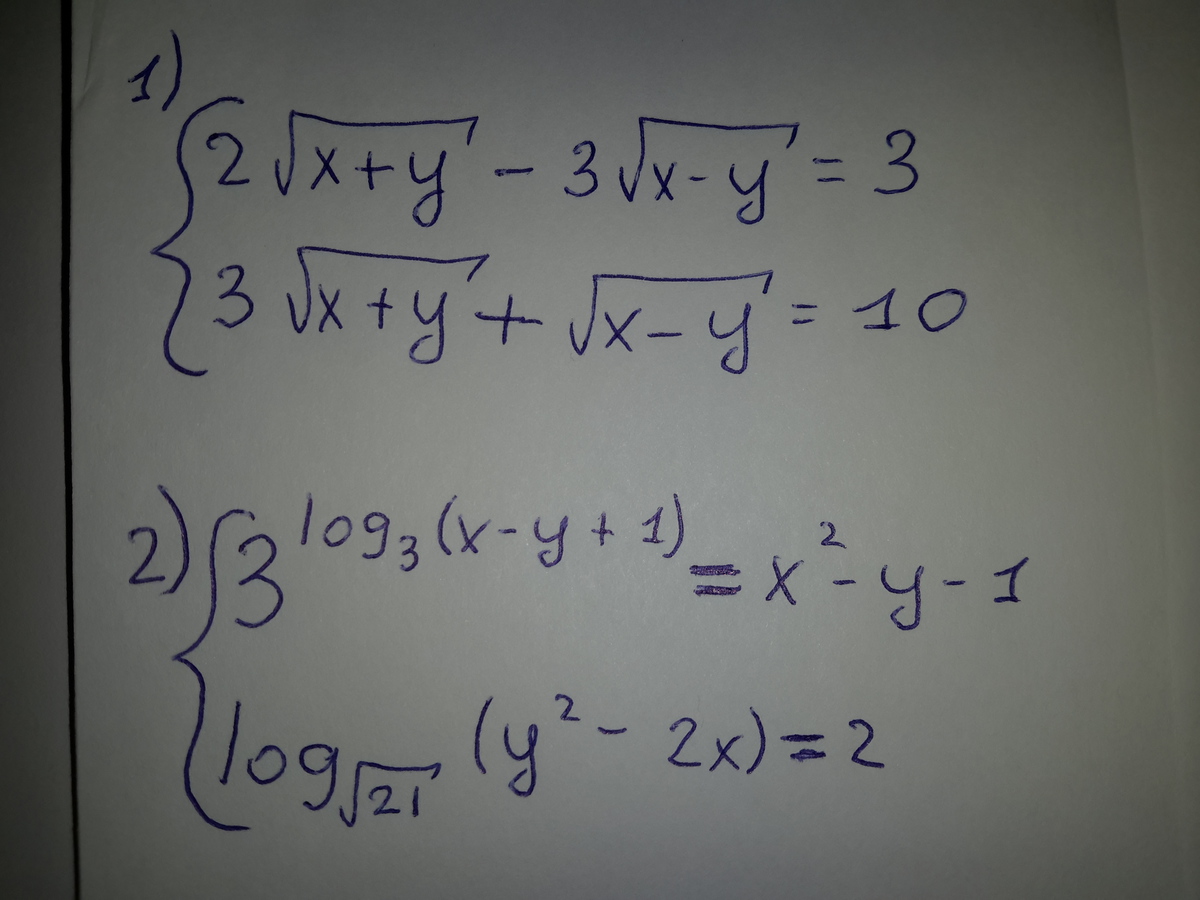 1)
2√(x+y) - 3√(x-y) = 3
3√(x+y) + √(x-y) = 10
2) 3^(log₃(x-y+1)) = x² - y - 1
log_√21 (y² - 2x) = 2